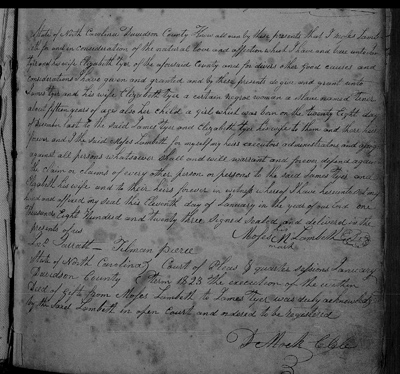 State of North Carolina Davidson County Know all men by these presents that I Moses Lambeth
for under consideration of the natural love and affection which I have and bear unto James
Tyer and his wife Elizabeth Tyer of the aforesaid County and for divers other good causes and
considerations I have given and granted and by these presents do give and grant unto
James tyer and his wife Elizabeth tyer a certain negroe woman a slave named
about fifteen years of age also her child a girl which was born on the twenty Eight day
last to the said James tyer and Elizabeth tyer his wife to them and there heirs
forever and I the said Moses Lambeth for my self my heirs executors administrators and assigns
against all persons whatsoever shall and will warrant and forever defend against
the claim or claims of every other person or persons to the said James tyer and
Elizabeth his wife and to their heirs forever in witness whereof I have hereunto set my
hand and affixed my seal this Eleventh day of January in the year of our Lord one
thousand Eight Hundred and twenty three Signed Sealed and delivered in the
presents of us
Moses Lambeth
mark
Tilman
State of North Carolina Court of Pleas & quarter sessions January
Davidson County term 1823 the execution of the within
Deed of gift from Moses Lambeth to James Tyer was duly acknowledged
by the said Lambeth in open court and ordered to be registered
D Mock Clk